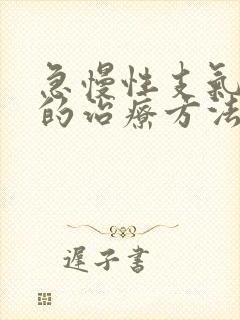 急慢性支氣
的治療方法
遲子書